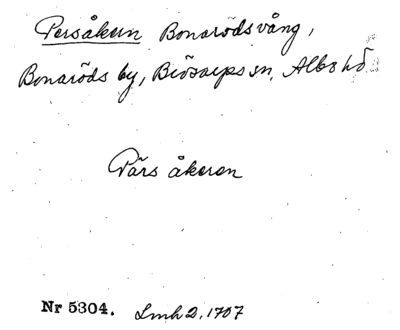 Persåkern Bonarödsvång,
Bonaröds by, Biösarps sn, Albo hd
Pärs åkeren
Nr 5304. Lmh 2, 1707